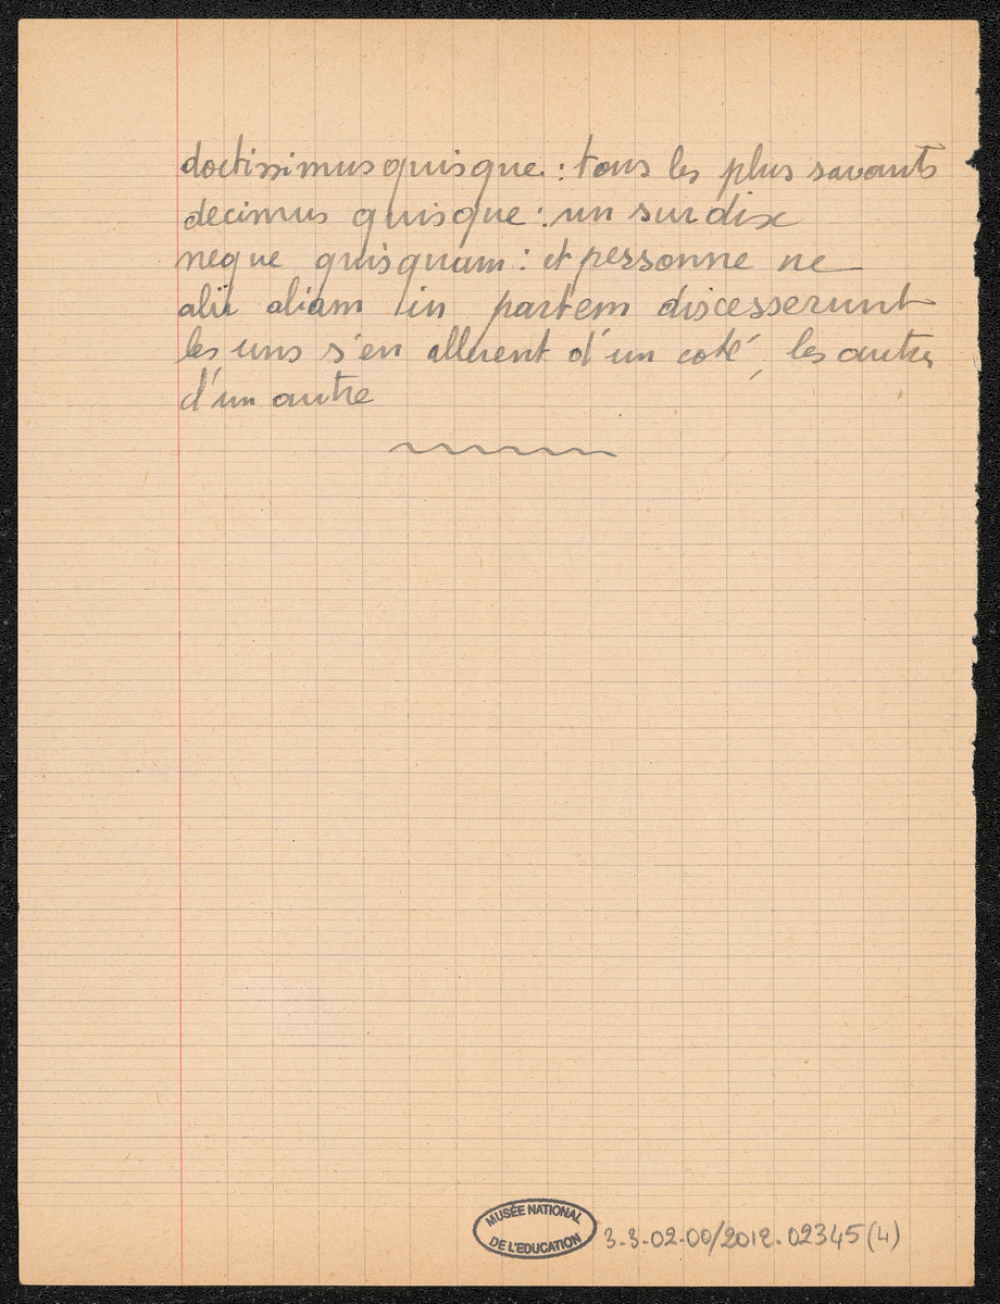 doctissimus quisque : tous les plus savants
decimus quisque : un sur dix
neque quisquam : et personne ne
alii aliam in partem discesserunt
les uns s'en allèrent d'un coté, les autres
d'un autre
MUSÉE NATIONAL
DE L'EDUCATION
3-3-02-00/2012-02345(4)